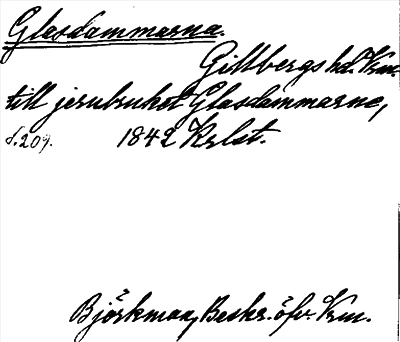 Glasdammarna.
Gillbergs hd. Vrm.
till jernbruket Glasdammarne,
s. 209. 1842 Krlst.
Björkman, Beskr. öfv. Vrm.